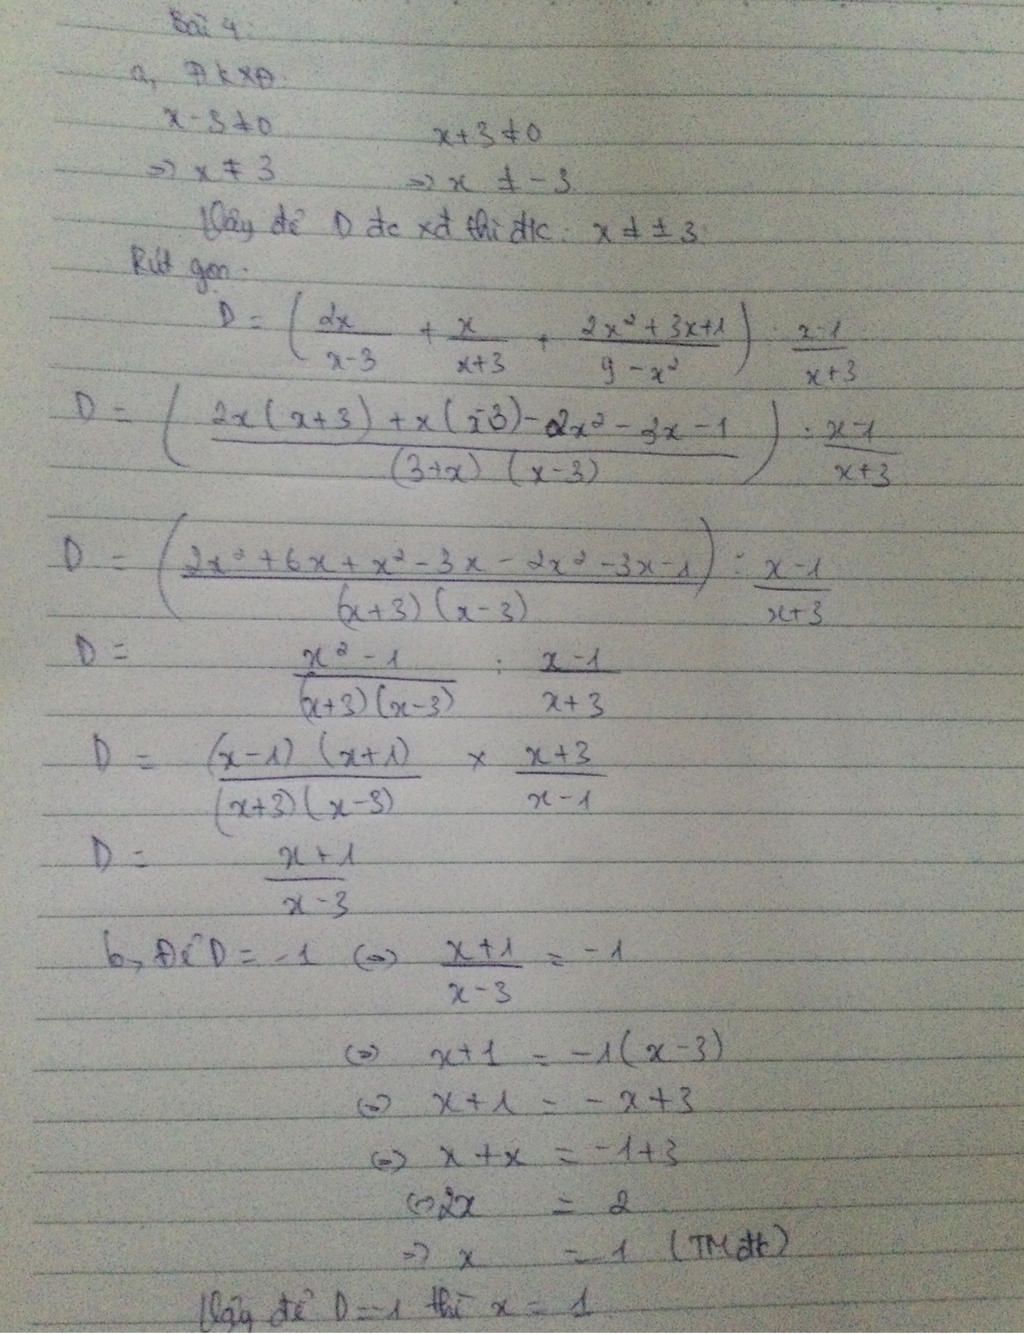 Bài 4:
a, ĐKXĐ.
x - 3 ≠ 0 x + 3 ≠ 0
=> x ≠ 3 => x ≠ -3
Vậy để D đc xđ thì đk: x ≠ ±3
Rút gọn:
D = ( 2x/(x-3) + x/(x+3) + (2x² + 3x + 1)/(9 - x²) ) : (x-1)/(x+3)
D = ( (2x(x+3) + x(x-3) - 2x² - 3x - 1)/((3+x)(x-3)) ) : (x-1)/(x+3)
D = ( (2x² + 6x + x² - 3x - 2x² - 3x - 1)/((x+3)(x-3)) ) : (x-1)/(x+3)
D = (x² - 1)/((x+3)(x-3)) : (x-1)/(x+3)
D = ((x-1)(x+1))/((x+3)(x-3)) × (x+3)/(x-1)
D = (x+1)/(x-3)
b, Để D = -1 <=> (x+1)/(x-3) = -1
<=> x+1 = -1(x-3)
<=> x+1 = -x+3
<=> x+x = -1+3
<=> 2x = 2
=> x = 1 (TMđk)
Vậy để D = -1 thì x = 1